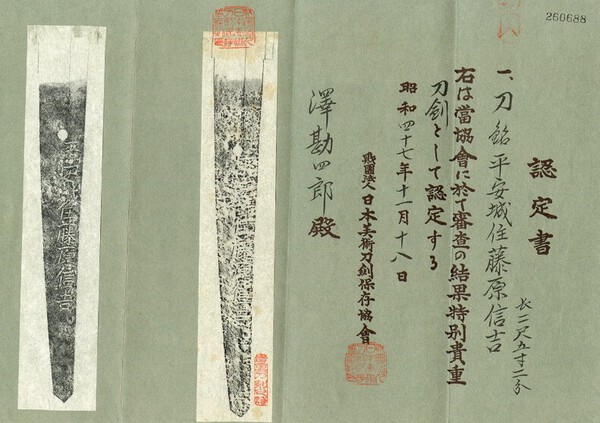 260688
認定書
一、刀 銘 平安城住藤原信吉
長二尺五寸二分
右は當協會に於て審査の結果特別貴重
刀劍として認定する
昭和四十七年十一月十八日
財團法人日本美術刀劍保存協會
澤勘四郎殿
住藤原信吉